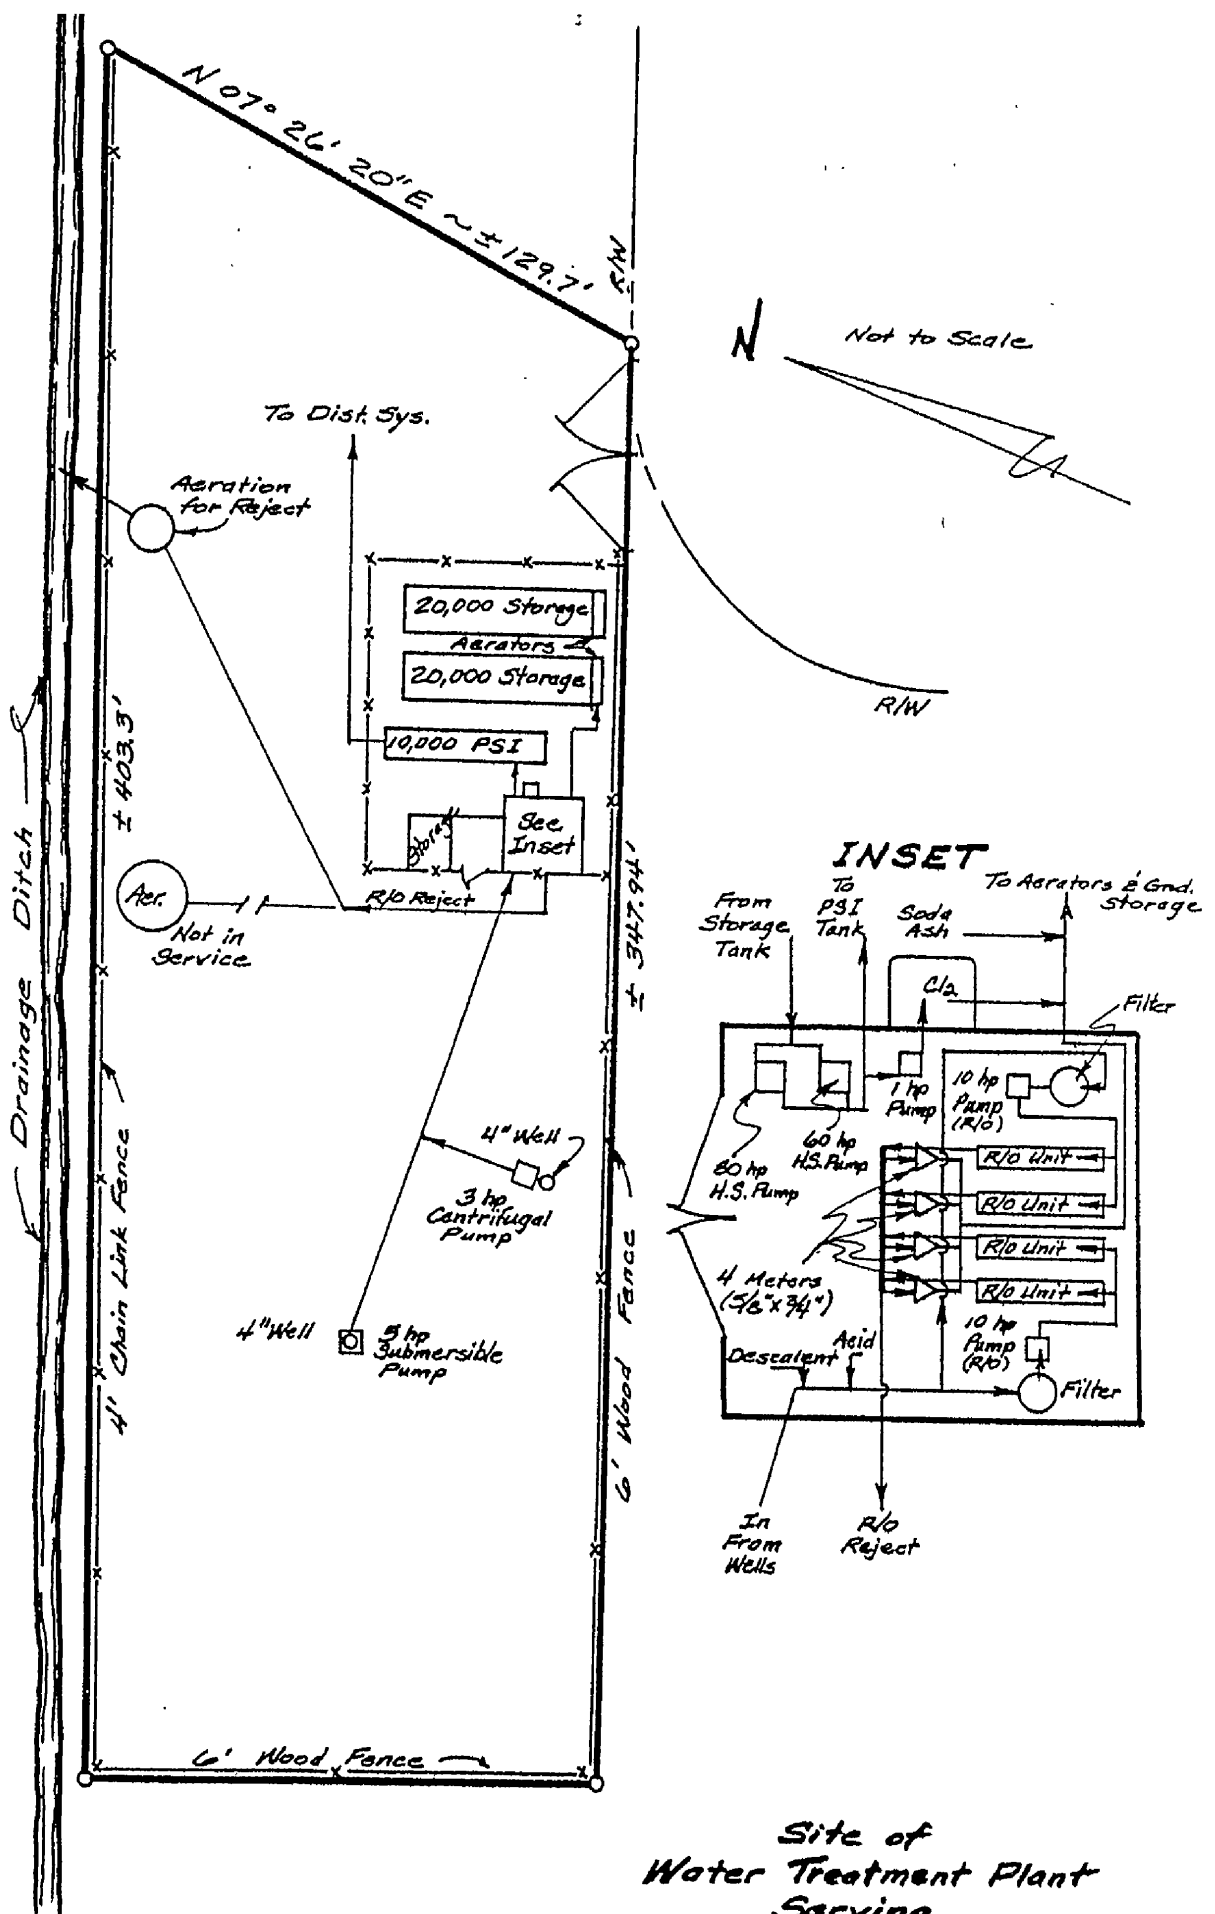 N 07° 26' 20" E ~ ± 129.7'
R/W
N
Not to Scale
To Dist. Sys.
Aeration
for Reject
20,000 Storage
Aerators
20,000 Storage
R/W
10,000 PSI
± 403.3'
See
Inset
Storage
R/O Reject
Aer.
Not in
Service
± 347.94'
Drainage Ditch
4' Chain Link Fence
4" Well
3 hp
Centrifugal
Pump
4" Well
5 hp
Submersible
Pump
6' Wood Fence
6' Wood Fence
INSET
To Aerators & Gnd.
Storage
To
PSI
Tank
From
Storage
Tank
Soda
Ash
Cl2
Filter
1 hp
Pump
10 hp
Pump
(R/O)
60 hp
H.S. Pump
80 hp
H.S. Pump
R/O Unit
R/O Unit
R/O Unit
R/O Unit
4 Meters
(5/8" x 3/4")
10 hp
Pump
(R/O)
Acid
Descalent
Filter
In
From
Wells
R/O
Reject
Site of
Water Treatment Plant
Serving